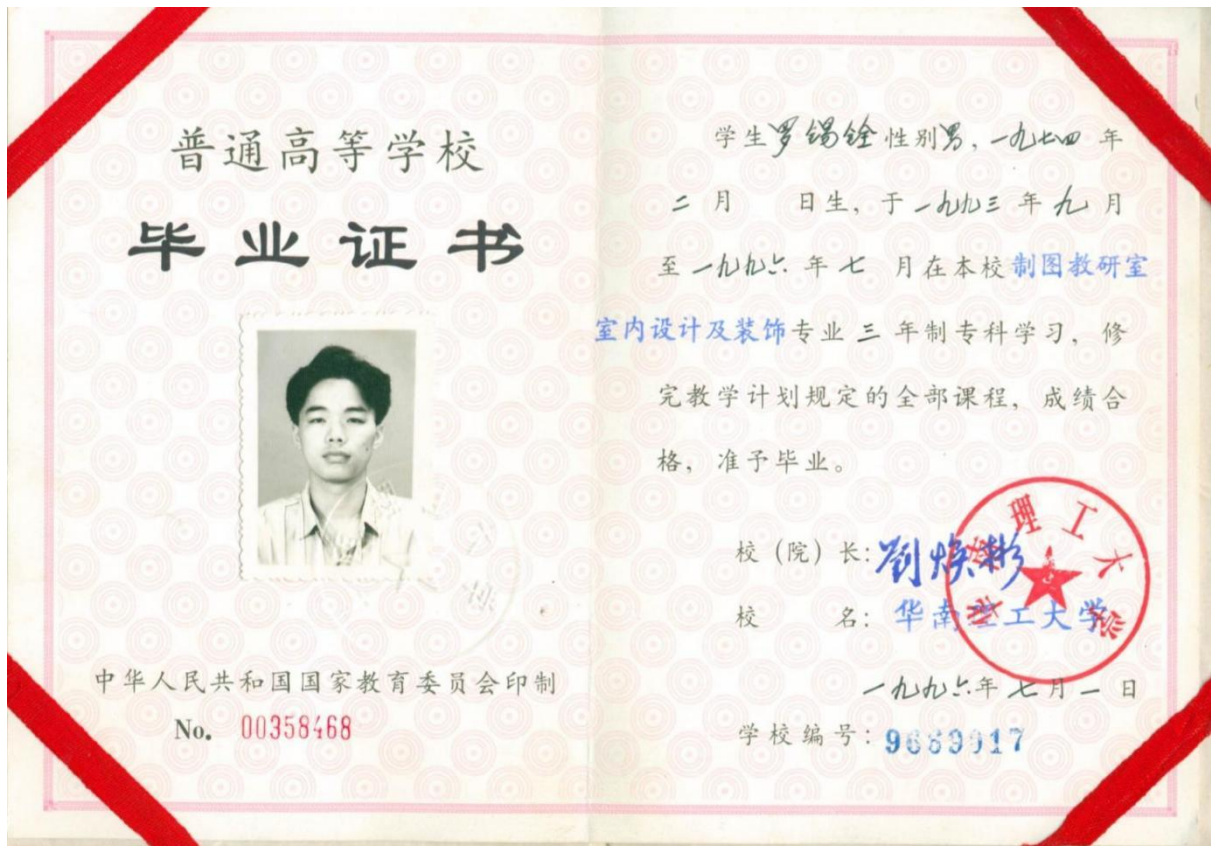 普通高等学校
毕业证书
中华人民共和国国家教育委员会印制
No. 00358468
学生罗锡铨性别男，一九七四年
二月 日生，于一九九三年九月
至一九九六年七月在本校制图教研室
室内设计及装饰专业三年制专科学习，修
完教学计划规定的全部课程，成绩合
格，准予毕业。
校（院）长：劉焕彬
校 名：华南理工大学
一九九六年七月一日
学校编号：
华南理工大学